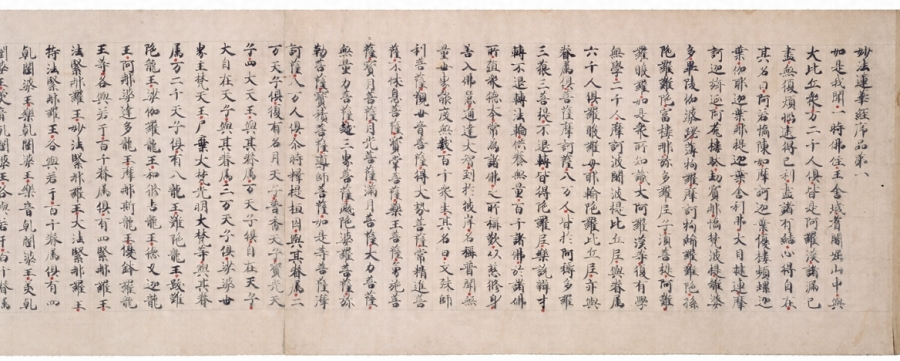 妙法蓮華經序品第
如是我聞一時佛住王舍城耆闍崛山中與
大比丘衆万二千人俱皆是阿羅漢諸漏已
盡無復煩惱逮得己利盡諸有結心得自在
其名曰阿若憍陳如摩訶迦葉優樓頻螺迦
葉伽耶迦葉那提迦葉舍利弗大目揵連摩
訶迦旃延阿㝹樓馱劫賓那憍梵波提離婆
多畢陵伽婆蹉薄拘羅摩訶拘絺羅難陀孫
陀羅難陀富樓那弥多羅尼子須菩提阿難
羅睺羅如是衆所知識大阿羅漢等復有學
無學二千人摩訶波闍波提比丘尼與眷屬
六千人俱羅睺羅母耶輸陀羅比丘尼亦與
眷屬俱菩薩摩訶薩八万人皆於阿耨多羅
三藐三菩提不退轉皆得陀羅尼樂說辯才
轉不退轉法輪供養無量百千諸佛於諸佛
所殖衆德本常爲諸佛之所稱歎以慈修身
善入佛慧通達大智到於彼岸名稱普聞無
量世界能度無數百千衆生其名曰文殊師
利菩薩觀世音菩薩得大勢菩薩常精進菩
薩不休息菩薩寶掌菩薩藥王菩薩勇施菩
薩寶月菩薩月光菩薩滿月菩薩大力菩薩
無量力菩薩越三界菩薩跋陀婆羅菩薩弥
勒菩薩寶積菩薩導師菩薩如是等菩薩摩
訶薩八万人俱尒時釋提桓因與其眷屬二
万天子俱復有名月天子普香天子寶光天
子四大天王與其眷屬万天子俱自在天子
大自在天子與其眷屬三万天子俱娑婆世
界主梵天王尸棄大梵光明大梵等與其眷
屬万二千天子俱有八龍王難陀龍王跋難
陀龍王娑伽羅龍王和脩吉龍王德叉迦龍
王阿那婆達多龍王摩那斯龍王優鉢羅龍
王等各與若干百千眷屬俱有四緊那羅王
法緊那羅王妙法緊那羅王大法緊那羅王
持法緊那羅王各與若干百千眷屬俱有四
乾闥婆王樂乾闥婆王樂音乾闥婆王美乾
闥婆王美音乾闥婆王各與若干百千眷屬